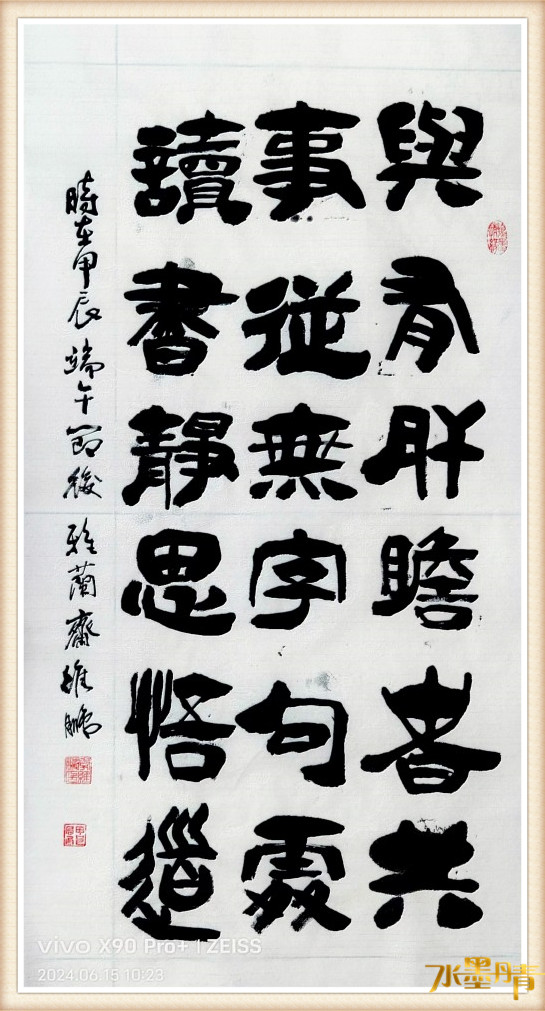 與有肝膽者共
事從無字句處
讀書靜思悟道
時在甲辰端午節後 雅蘭齋維鵬
vivo X90 Pro+ | ZEISS
2024.06.15 10:23
水墨丹青